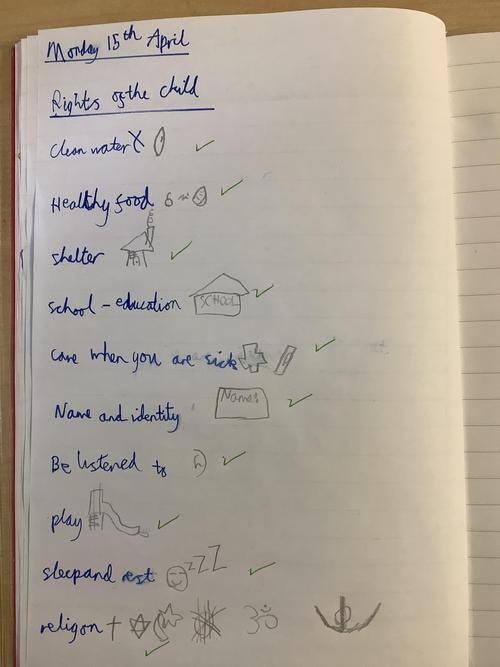 Monday 15th April
Rights of the child
Clean water
Healthy food
shelter
school - education SCHOOL
Care when you are sick
Name and identity Names
Be listened to
play
sleep and rest zzz
religon ॐ